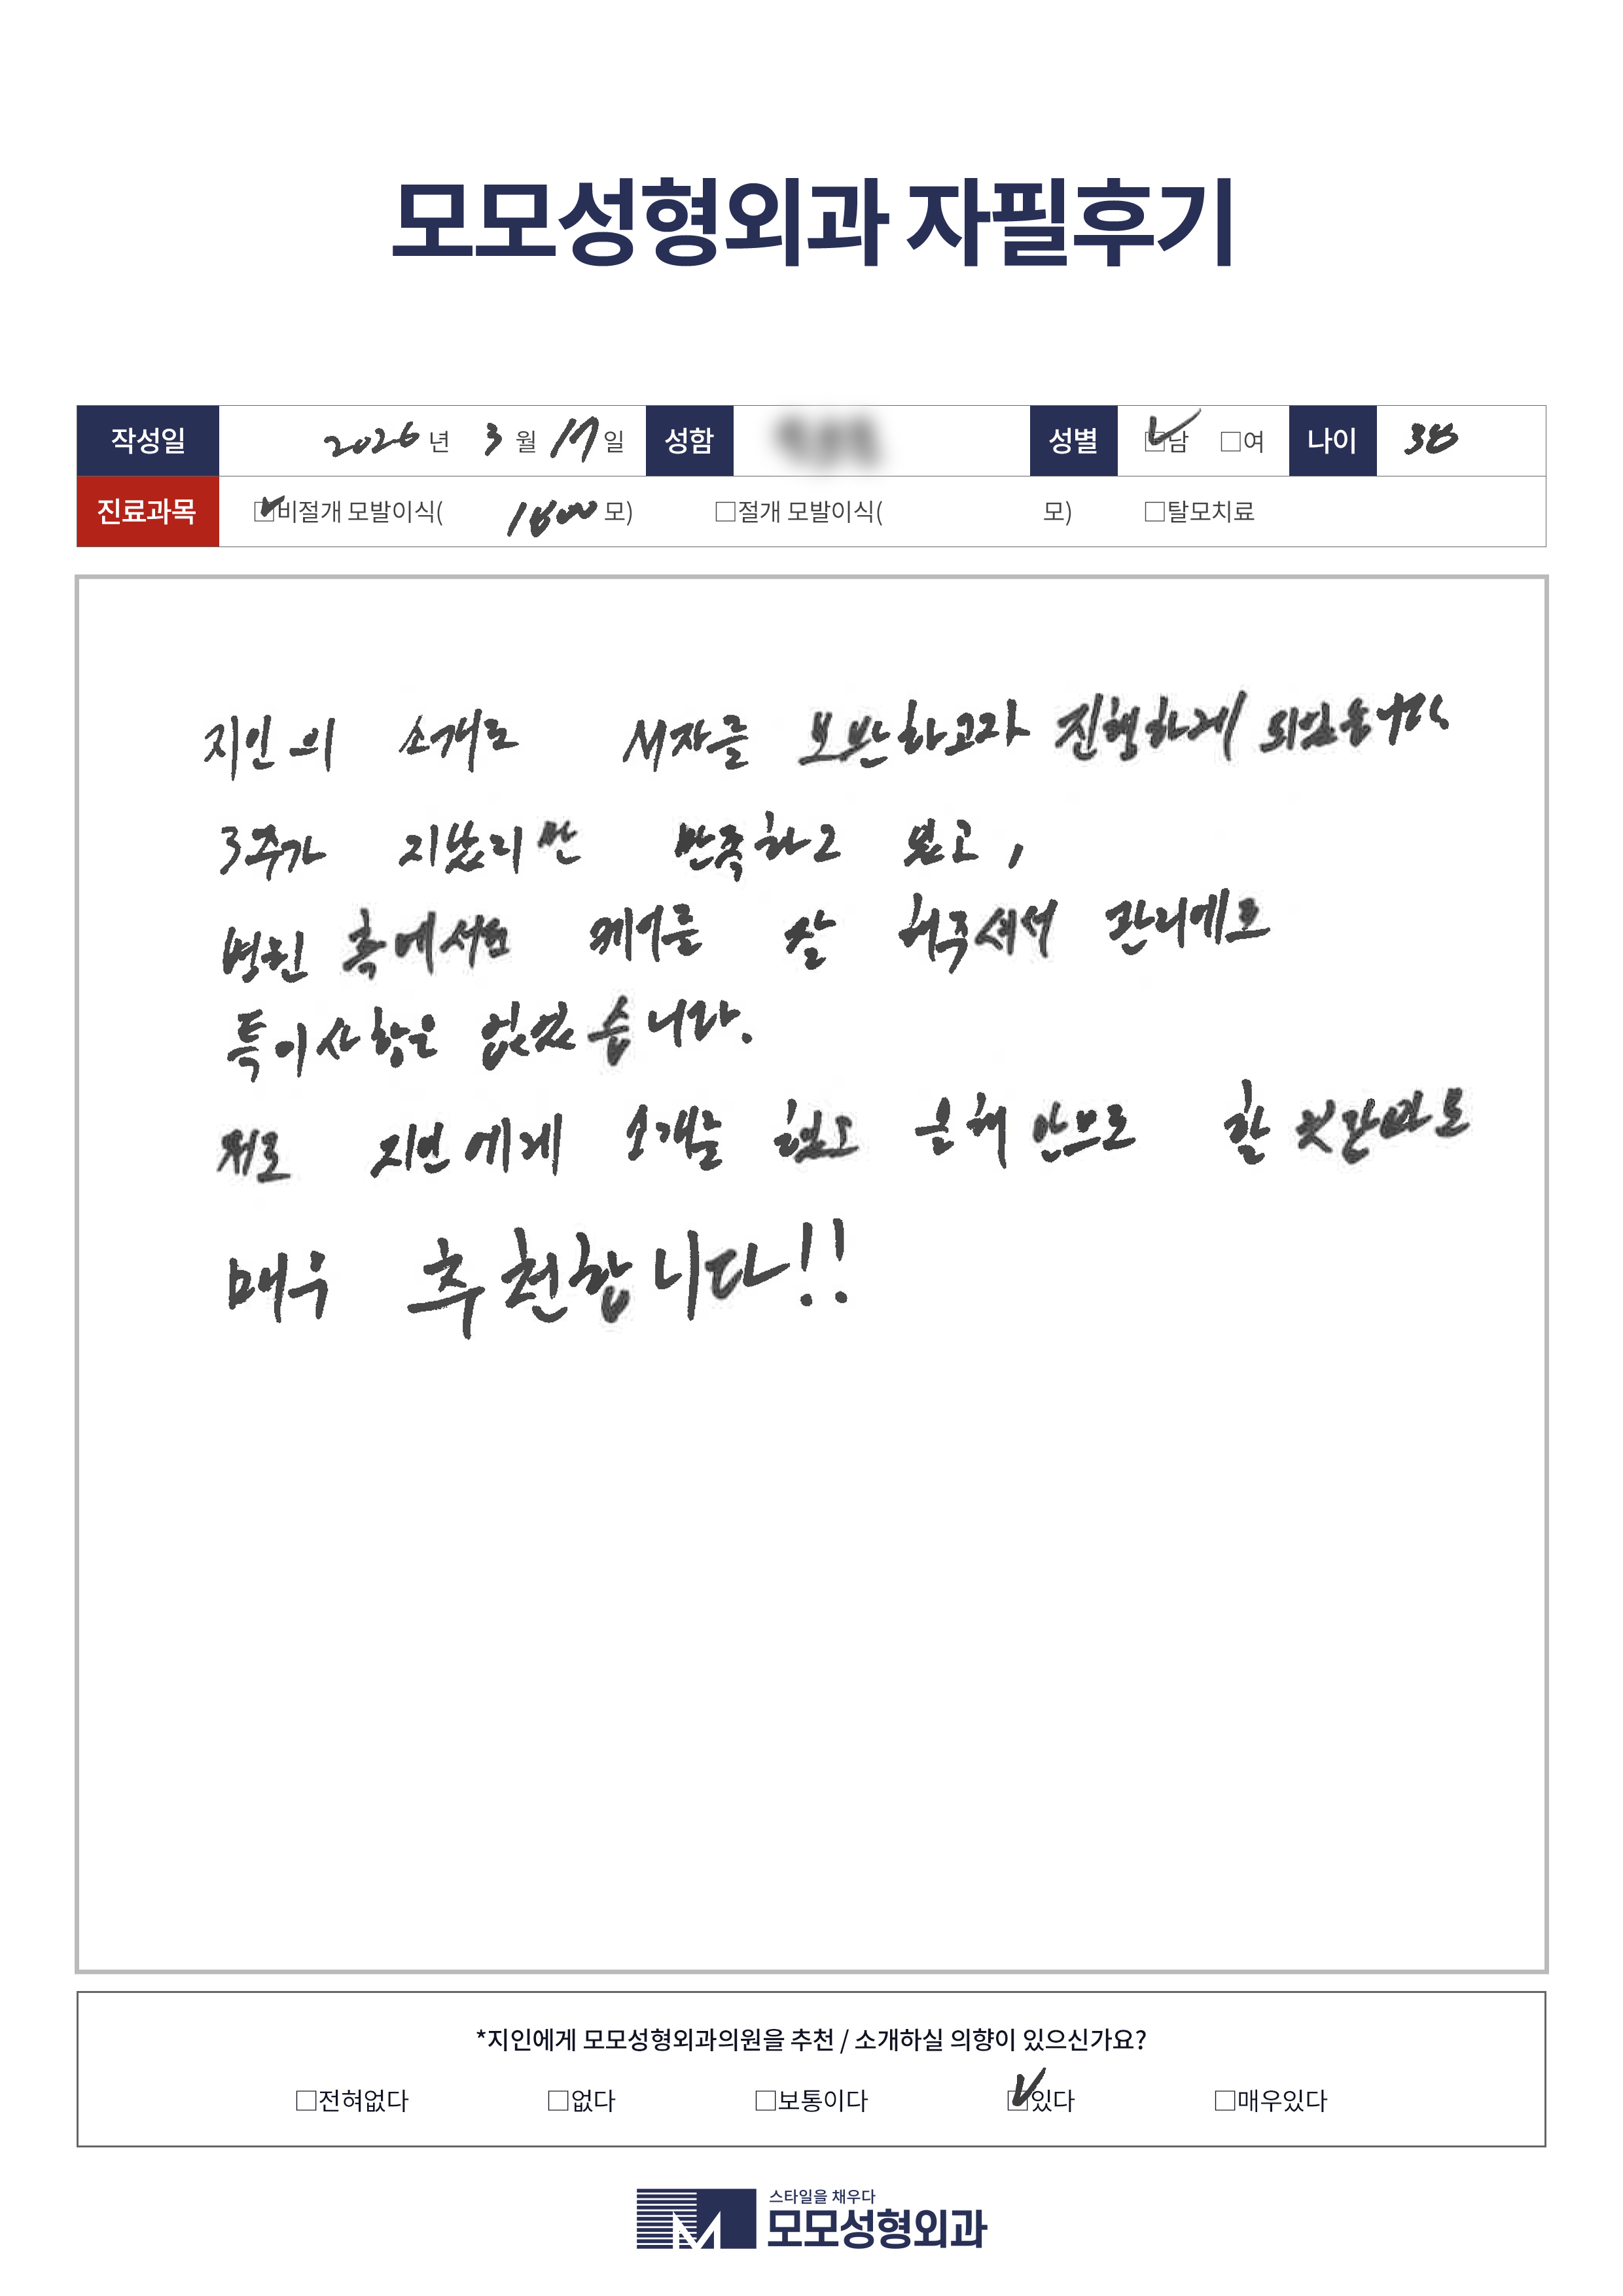 모모성형외과 자필후기
작성일 2026 년 3 월 17 일 성함 성별 ☑남 □여 나이 38
진료과목 ☑비절개 모발이식( 1800 모) □절개 모발이식( 모) □탈모치료
지인의 소개로 M자를 보완하고자 진행하게 되었습니다.
3주가 지났지만 만족하고 있고,
병원 측에서도 케어를 잘 해주셔서 관리에도
특이사항은 없었습니다.
저도 지인에게 소개를 했고 올해 안으로 할
매우 추천합니다!!
*지인에게 모모성형외과의원을 추천 / 소개하실 의향이 있으신가요?
□전혀없다 □없다 □보통이다 ☑있다 □매우있다
스타일을 채우다
모모성형외과